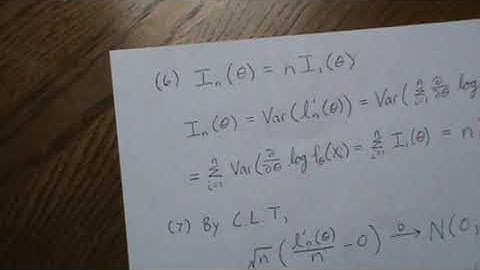 (6) I_n(θ) = n I_1(θ)
I_n(θ) = Var(l'_n(θ)) = Var(∑_{i=1}^{n} ∂/∂θ log
= ∑_{i=1}^{n} Var(∂/∂θ log f_θ(X_i) = ∑_{i=1}^{n} I_1(θ) = n
(7) By C.L.T,
√n (l'_n(θ)/n - 0) →^D N(0,